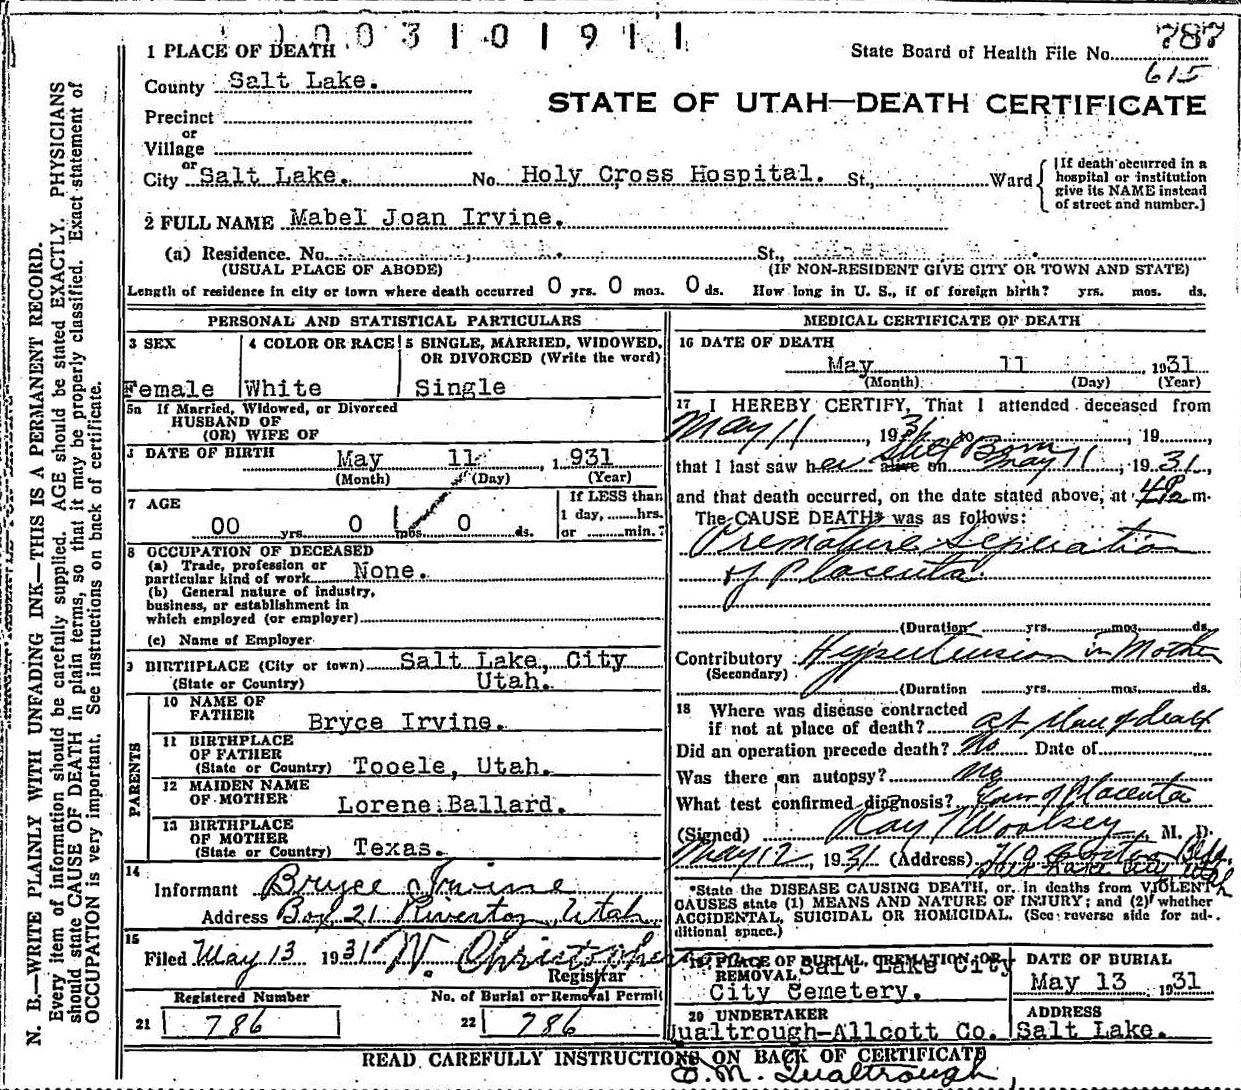 0 0 3 1 0 1 9 1 1
1 PLACE OF DEATH
State Board of Health File No. 787
615
County Salt Lake.
STATE OF UTAH—DEATH CERTIFICATE
Precinct
or
Village
or
City Salt Lake. No. Holy Cross Hospital. St., Ward
[If death occurred in a hospital or institution give its NAME instead of street and number.]
2 FULL NAME Mabel Joan Irvine.
(a) Residence. No. St.,
(USUAL PLACE OF ABODE) (IF NON-RESIDENT GIVE CITY OR TOWN AND STATE)
Length of residence in city or town where death occurred 0 yrs. 0 mos. 0 ds. How long in U. S., if of foreign birth? yrs. mos. ds.
PERSONAL AND STATISTICAL PARTICULARS
3 SEX
Female
4 COLOR OR RACE
White
5 SINGLE, MARRIED, WIDOWED,
OR DIVORCED (Write the word)
Single
5a If Married, Widowed, or Divorced
HUSBAND OF
(OR) WIFE OF
DATE OF BIRTH May 11 1931
(Month) (Day) (Year)
7 AGE
00 yrs. 0 mos. 0 ds.
If LESS than
1 day, hrs.
or min.?
8 OCCUPATION OF DECEASED
(a) Trade, profession or
particular kind of work None.
(b) General nature of industry,
business, or establishment in
which employed (or employer)
(c) Name of Employer
9 BIRTHPLACE (City or town) Salt Lake, City
(State or Country) Utah.
PARENTS
10 NAME OF
FATHER Bryce Irvine.
11 BIRTHPLACE
OF FATHER
(State or Country) Tooele, Utah.
12 MAIDEN NAME
OF MOTHER Lorene Ballard.
13 BIRTHPLACE
OF MOTHER
(State or Country) Texas.
14
Informant Bryce Irvine
Address Box 21 Riverton, Utah
15
Filed May 13 1931 W. Christopherson
Registrar
Registered Number
21 786
No. of Burial or Removal Permit
22 786
MEDICAL CERTIFICATE OF DEATH
16 DATE OF DEATH
May 11 1931
(Month) (Day) (Year)
17 I HEREBY CERTIFY, That I attended deceased from
May 11, 1931 to , 19 ,
Still Born
that I last saw her alive on May 11, 1931,
and that death occurred, on the date stated above, at 4P m.
The CAUSE DEATH* was as follows:
Premature Seperation
of Placenta.
(Duration yrs. mos. ds.
Contributory Hypertension in Mother
(Secondary)
(Duration yrs. mos. ds.
18 Where was disease contracted
if not at place of death? at place of death
Did an operation precede death? No Date of
Was there an autopsy? no
What test confirmed diagnosis? Exam of Placenta
(Signed) Ray T Woolsey, M. D.
May 12, 1931 (Address) Bldg.
Salt Lake City Utah
*State the DISEASE CAUSING DEATH, or, in deaths from VIOLENT
CAUSES state (1) MEANS AND NATURE OF INJURY; and (2) whether
ACCIDENTAL, SUICIDAL OR HOMICIDAL. (See reverse side for ad-
ditional space.)
19 PLACE OF BURIAL, CREMATION, OR
REMOVAL Salt Lake City
City Cemetery.
DATE OF BURIAL
May 13 1931
20 UNDERTAKER
Qualtrough-Allcott Co.
ADDRESS
Salt Lake.
READ CAREFULLY INSTRUCTIONS ON BACK OF CERTIFICATE
E. M. Qualtrough,
N. B.—WRITE PLAINLY WITH UNFADING INK—THIS IS A PERMANENT RECORD.
Every item of information should be carefully supplied. AGE should be stated EXACTLY. PHYSICIANS
should state CAUSE OF DEATH in plain terms, so that it may be properly classified. Exact statement of
OCCUPATION is very important. See instructions on back of certificate.